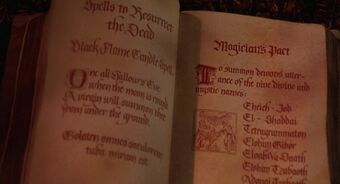 Spells to Resurrect
the Dead
Black Flame Candle Spell
One all Hallow's Eve
when the moon is round
A virgin will summon thee
from under the ground.
tuba mirum est
Magician's Pact
To summon demons utter-
ance of the nine divine and
mystic names:
Ehrich - Jod
El - Shaddai
Tetragrammaton
Elohim Gibor
Elohim Tzabaoth